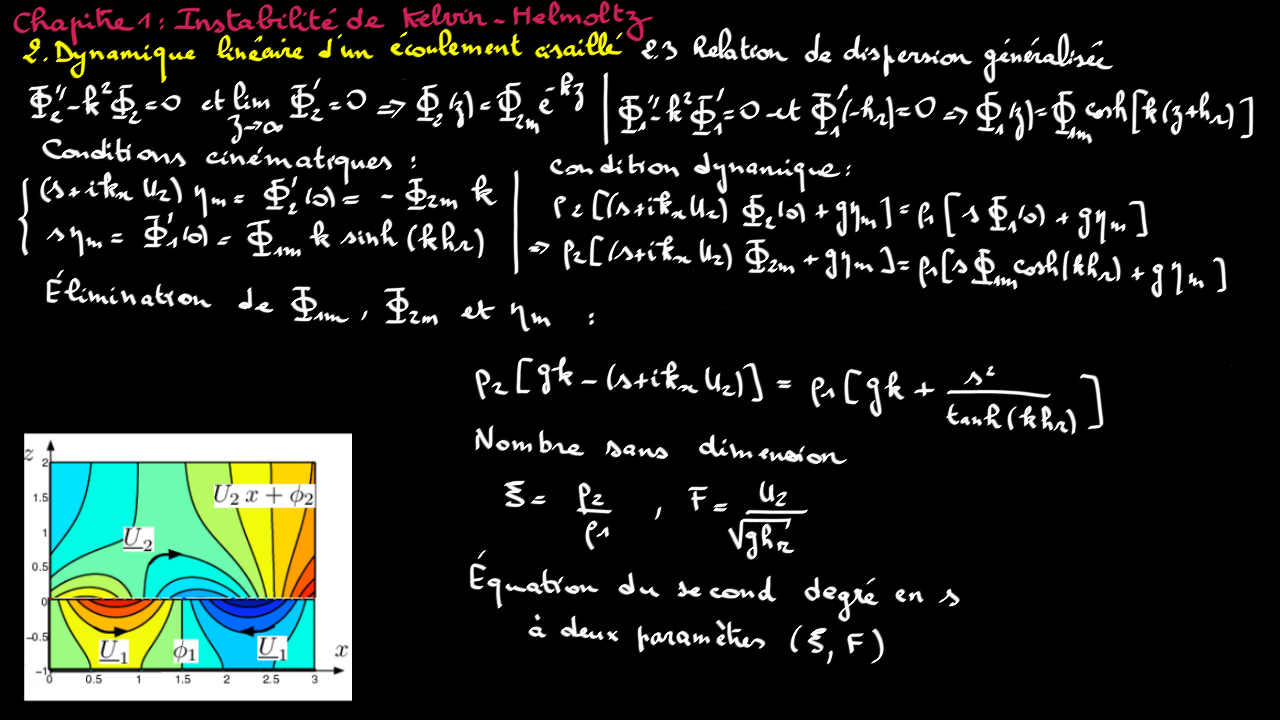 Chapitre 1 : Instabilité de Kelvin - Helmoltz
2. Dynamique linéaire d'un écoulement cisaillé 2.3 Relation de dispersion généralisée
Φ₂'' - k²Φ₂ = 0 et lim_{z→∞} Φ₂' = 0 => Φ₂(z) = Φ₂ₘ e^{-kz} | Φ₁'' - k²Φ₁' = 0 et Φ₁'(-h_r) = 0 => Φ₁(z) = Φ₁ₘ cosh[k(z+h_r)]
Conditions cinématiques :
{ (s + ikₓ U₂) ηₘ = Φ₂'(0) = - Φ₂ₘ k
s ηₘ = Φ₁'(0) = Φ₁ₘ k sinh(k h_r)
condition dynamique :
ρ₂[(s + ikₓ U₂) Φ₂(0) + g ηₘ] = ρ₁[s Φ₁(0) + g ηₘ]
=> ρ₂[(s + ikₓ U₂) Φ₂ₘ + g ηₘ] = ρ₁[s Φ₁ₘ cosh(k h_r) + g ηₘ]
Élimination de Φ₁ₘ, Φ₂ₘ et ηₘ :
ρ₂[gk - (s + ikₓ U₂)] = ρ₁[gk + s² / tanh(k h_r)]
Nombre sans dimension
ξ = ρ₂ / ρ₁ , F = U₂ / √(g h_r)
Équation du second degré en s
à deux paramètres (ξ, F)
z
2
1.5
1
0.5
0
-0.5
-1
U₂ x + ϕ₂
U₂
U₁
ϕ₁
U₁
x
0 0.5 1 1.5 2 2.5 3